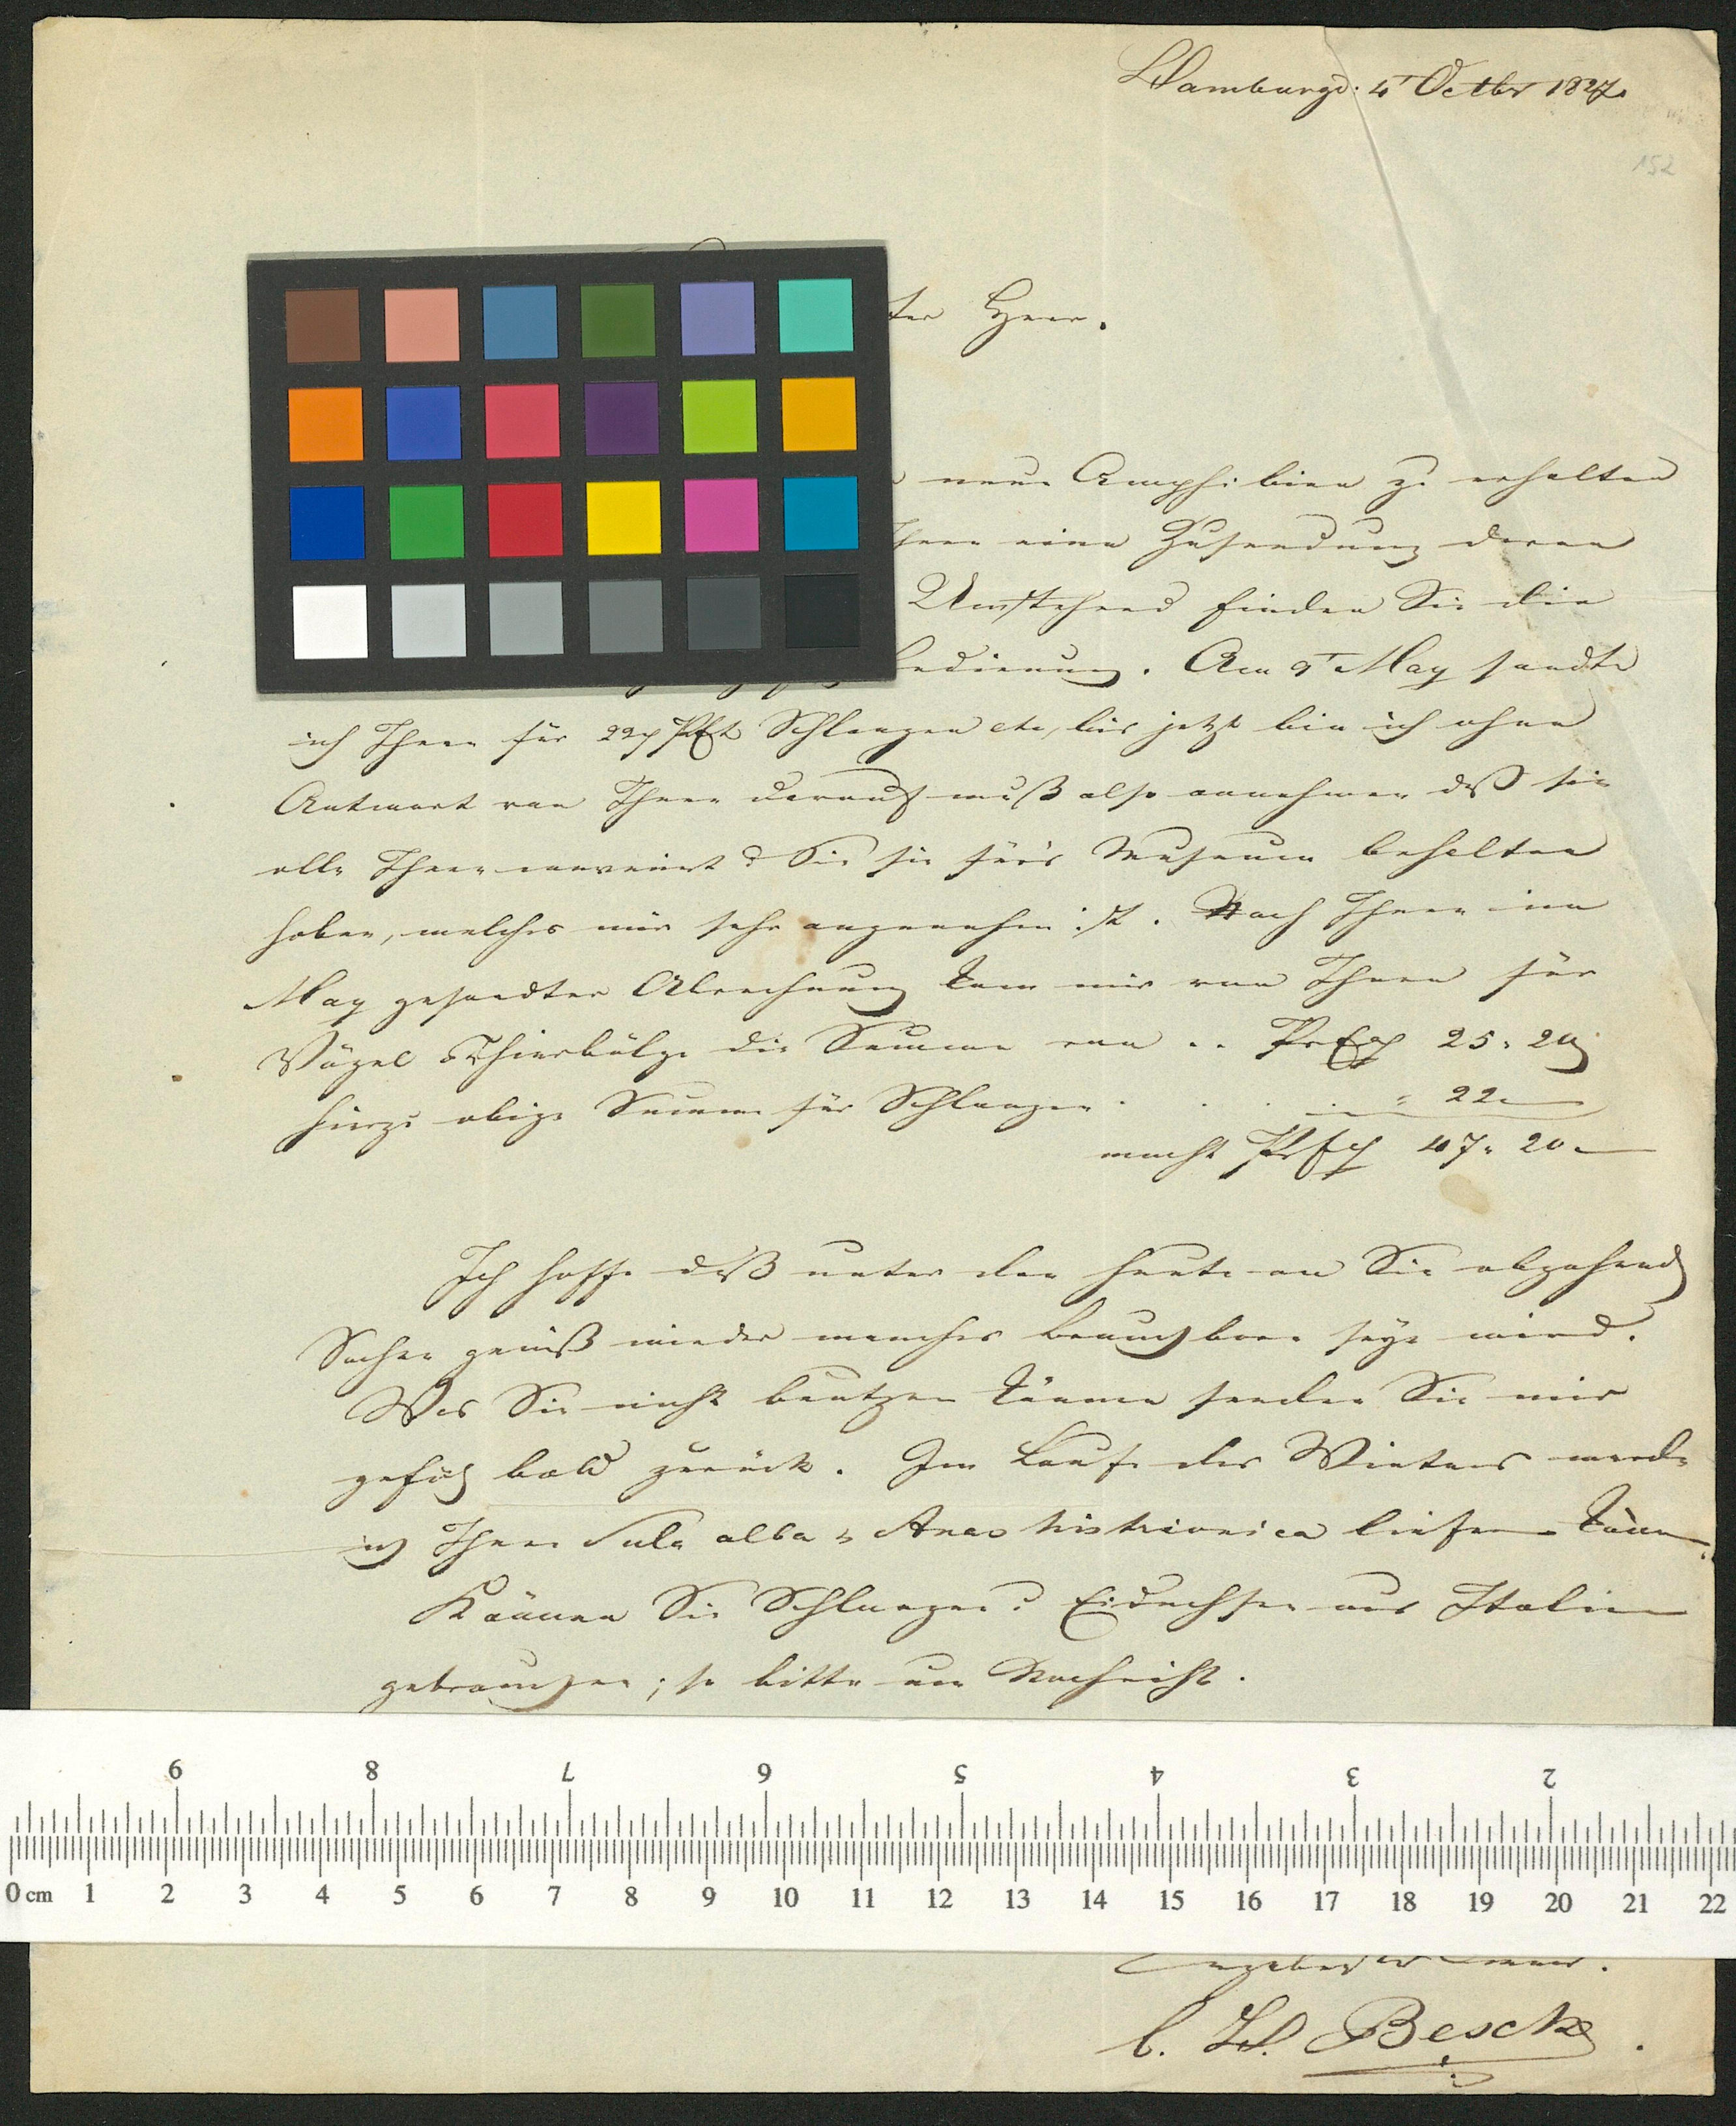 Hamburg d: 4t Octbr 1827.
152
ter Herr.
neue Amphibien zu erhalten
Ihnen eine Zusendung deren
Umstehend finden Sie die
bedienung. Am 9t May sandte
ich Ihnen für 22 Schlangen etc, bis jetzt bin ich ohne
Antwort von Ihnen darauf muß also annehmen daß sie
alle Ihnen convenirt & Sie sie für's Museum behalten
haben, welches mir sehr angenehm ist. Nach Ihnen im
May gesandter Abrechnung kam mir von Ihnen für
Vögel & Thierbälge die Summe von .. 25. 20
hierzu obige Summe für Schlangen . . . . 22
macht 47. 20
Ich hoffe daß unter den heute an Sie abgehend
Sachen gewiß wieder manches brauchbare seyn wird.
Was Sie nicht benutzen können senden Sie mir
bald zurück. Im Laufe des Winters werde
ich Ihnen Sula alba & Anas histrionica liefern können
Können Sie Schlangen & Eidechsen aus Italien
gebrauchen; so bitte um Nachricht.
9 8 7 6 5 4 3 2
0 cm 1 2 3 4 5 6 7 8 9 10 11 12 13 14 15 16 17 18 19 20 21 22
C. H. Bescke.